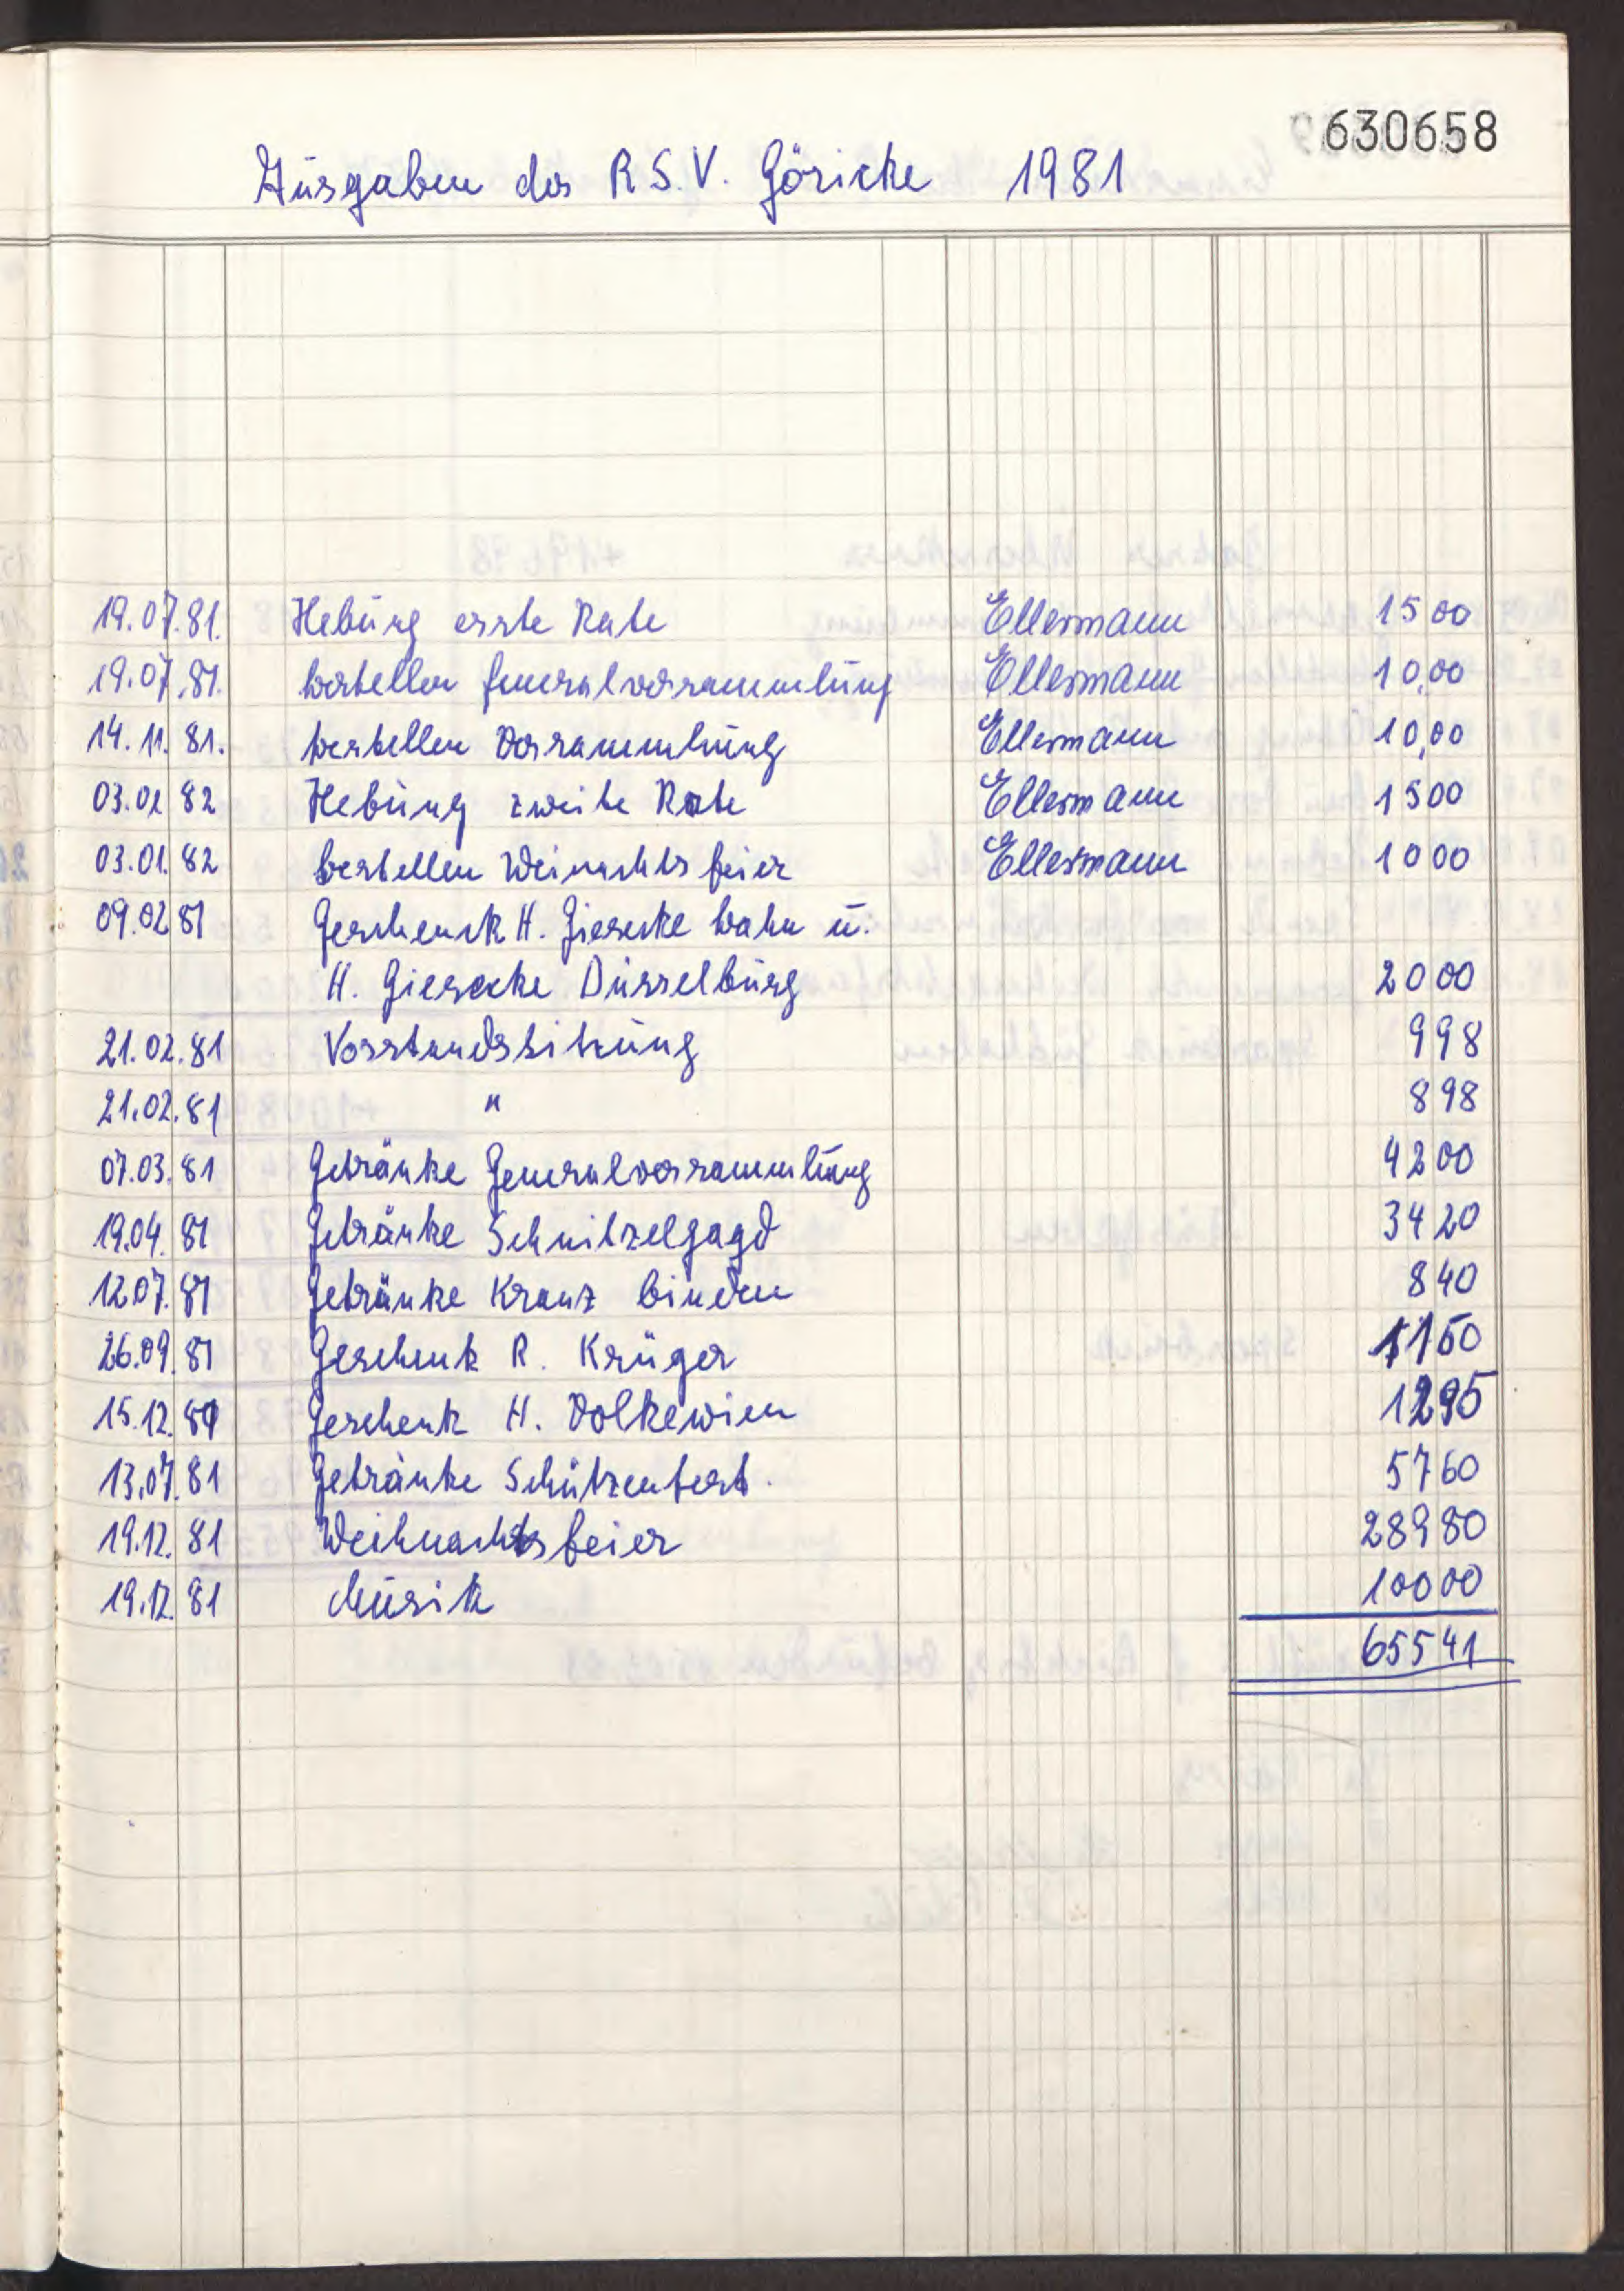 630658
Ausgaben des R.S.V. Göricke 1981
19.07.81. Hebung erste Rate Ellermann 15 00
19.07.81. bestellen Generalversammlung Ellermann 10,00
14.11.81. bestellen Versammlung Ellermann 10,00
03.01 82 Hebung zweite Rate Ellermann 15 00
03.01.82 bestellen Weinachtsfeier Ellermann 10 00
09.02 81 Geschenck H. Giesecke Wahn u.
H. Giesecke Düsselburg 20 00
21.02.81 Vorstandssitzung 9 98
21.02.81 " 8 98
07.03.81 Getränke Generalversammlung 42 00
19.04.81 Getränke Schnitzelgagd 34 20
12.07.81 Getränke Kranz binden 8 40
26.09.81 Geschenk R. Krüger 11 50
15.12.81 Geschenk H. Volkewien 12 95
13.07.81 Getränke Schützenfest. 57 60
19.12.81 Weihnachtsfeier 289 80
19.12.81 Musik 100 00
655 41